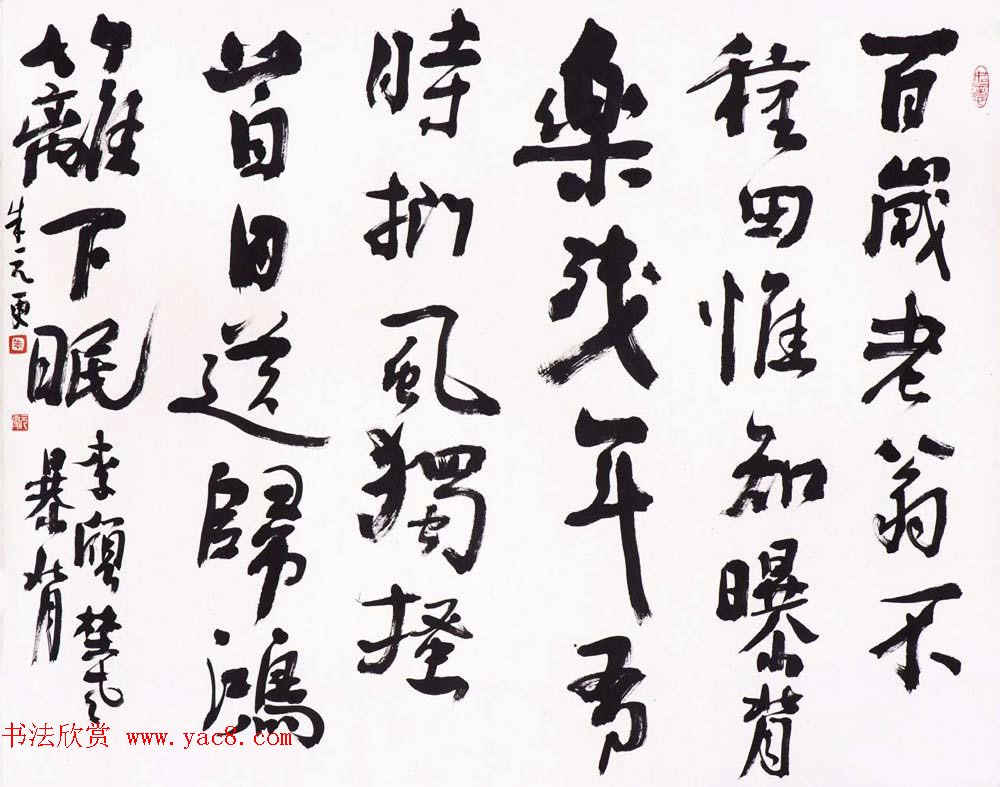 百歲老翁不
種田惟知曝背
樂残年有
時捫虱獨搔
首目送歸鴻
籬下眠
李頎埜老
暴背
朱元更
书法欣赏 www.yac8.com